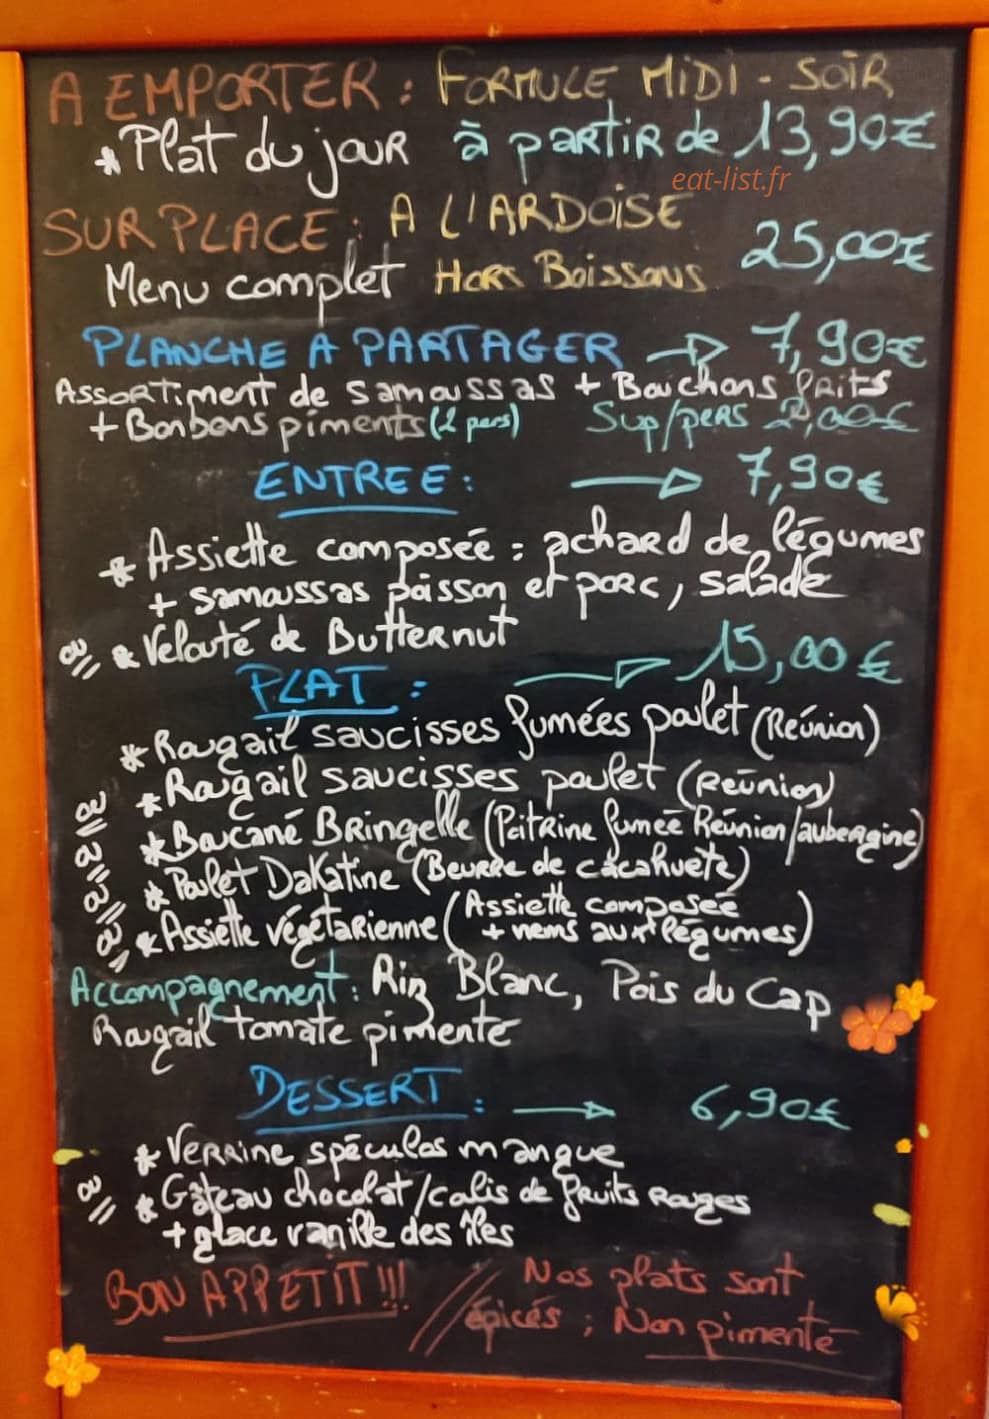 A EMPORTER : FORMULE MIDI - SOIR
* Plat du jour à partir de 13,90€
eat-list.fr
SUR PLACE : A L'ARDOISE
Menu complet Hors Boissons 25,00€
PLANCHE A PARTAGER → 7,90€
Assortiment de samoussas + Bouchons frits
+ Bonbons piments (2 pers) Sup/pers 2,00€
ENTREE : → 7,90€
* Assiette composée : achard de légumes
+ samoussas poisson et porc, salade
ou // * Velouté de Butternut
PLAT : → 15,00€
* Rougail saucisses fumées poulet (Réunion)
ou // * Rougail saucisses poulet (Réunion)
ou // * Boucané Bringelle (Poitrine fumée Réunion/aubergine)
ou // * Poulet Dakatine (Beurre de cacahuète)
ou // * Assiette végétarienne (Assiette composée
+ nems aux légumes)
Accompagnement : Riz Blanc, Pois du Cap
Rougail tomate pimenté
DESSERT : → 6,90€
* Verrine spéculos mangue
ou // * Gâteau chocolat/coulis de fruits Rouges
+ glace vanille des îles
BON APPETIT !!! // Nos plats sont
épicés ; Non pimenté